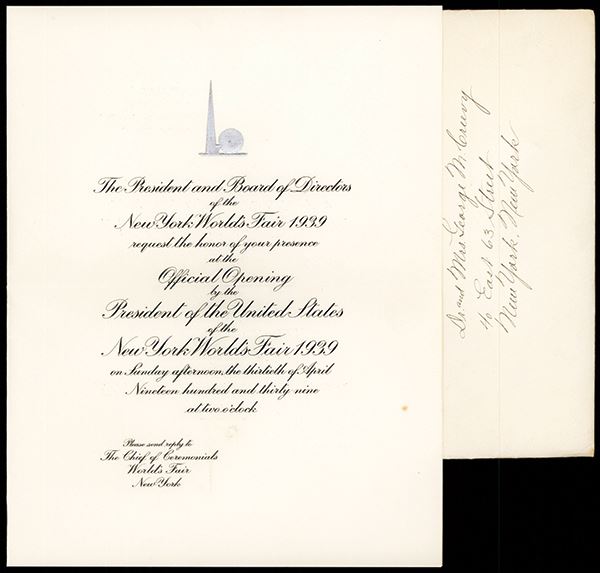 The President and Board of Directors
of the
New York World's Fair 1939
request the honor of your presence
at the
Official Opening
by the
President of the United States
of the
New York World's Fair 1939
on Sunday afternoon, the thirtieth of April
Nineteen hundred and thirty nine
at two o'clock
Please send reply to
The Chief of Ceremonials
World's Fair
New York
Dr. and Mrs. George McCreevy
East 63 Street
New York, New York